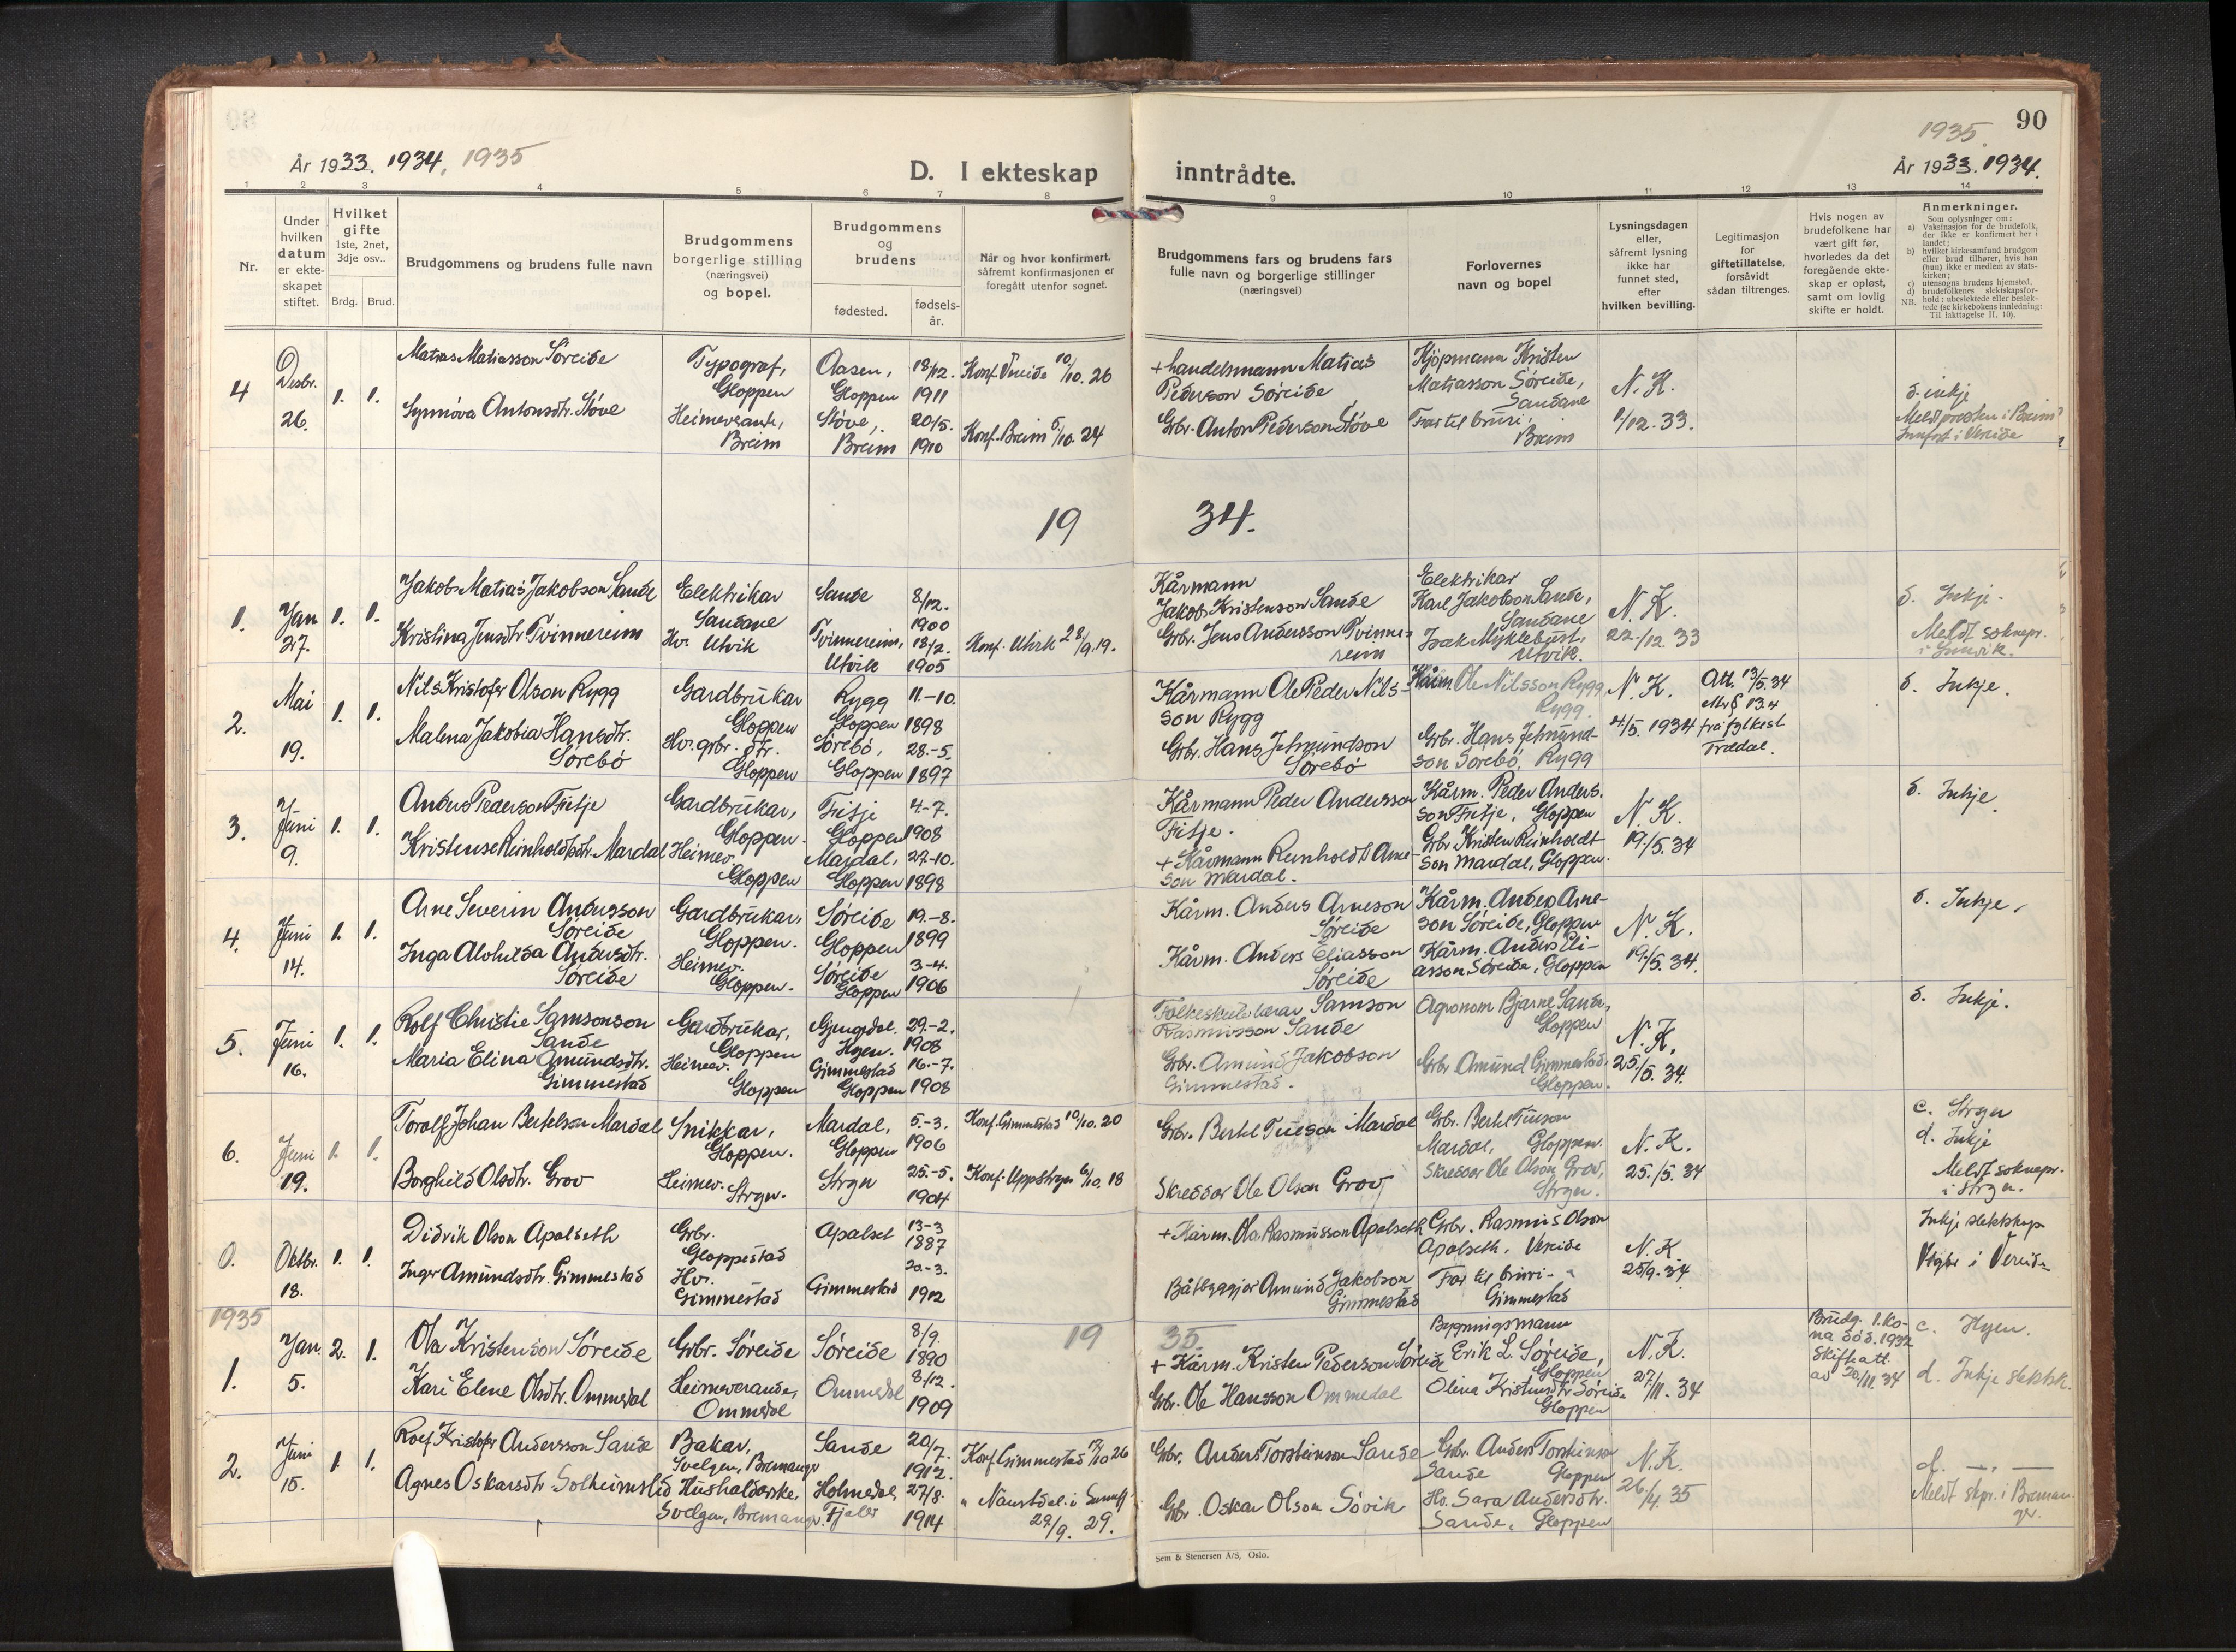 90
År 1933. 1934. 1935
D. I ekteskap inntrådte.
1935
År 1933. 1934.
1 2 3 4 5 6 7 8 9 10 11 12 13 14
Nr.
Under hvilken datum er ekteskapet stiftet.
Hvilket gifte
1ste, 2net, 3dje osv..
Brdg. Brud.
Brudgommens og brudens fulle navn
Brudgommens borgerlige stilling (næringsvei) og bopel.
Brudgommens og brudens
fødested.
fødselsår.
Når og hvor konfirmert, såfremt konfirmasjonen er foregått utenfor sognet.
Brudgommens fars og brudens fars fulle navn og borgerlige stillinger (næringsvei)
Forlovernes navn og bopel
Lysningsdagen eller, såfremt lysning ikke har funnet sted, efter hvilken bevilling.
Legitimasjon for giftetillatelse, forsåvidt sådan tiltrenges.
Hvis nogen av brudefolkene har vært gift før, hvorledes da det foregående ekteskap er opløst, samt om lovlig skifte er holdt.
Anmerkninger.
Som oplysninger om:
a) Vaksinasjon for de brudefolk, der ikke er konfirmert her i landet;
b) hvilket kirkesamfund brudgom eller brud tilhører, hvis han (hun) ikke er medlem av statskirken;
c) utensogns brudens hjemsted.
d) brudefolkenes slektskapsforhold: ubeslektede eller beslektede (se kirkebokens innledning:
NB. Til iakttagelse II. 10).
4 Desbr. 26. 1. 1.
Matias Matiasson Søreide
Typograf, Gloppen
Aasen, Gloppen
18/12. 1911
Konf. Vereide 10/10. 26
+ handelsmann Matias Pederson Søreide
Kjøpmann Kristen Matiasson Søreide, Sandane
N. K.
1/12. 33.
d. inkje
Synnøva Antonsdtr. Støve
Heimeverande, Breim
Støve, Breim
20/5. 1910
Konf. Breim 5/10. 24
Grbr. Anton Pederson Støve
Far til bruri. Breim
Meldt presten i Breim
Innført i Vereide
19 34.
1. Jan 27. 1. 1.
Jakob Matias Jakobson Sande
Elektrikar Sandane
Sande
8/12. 1900
Kårmann Jakob Kristenson Sande
Elektrikar Karl Jakobson Sande, Sandane
N. K.
22/12. 33
d. Inkje.
Kristina Jensdtr Tvinnereim
Hv. Utvik
Tvinnereim, Utvik
18/2. 1905
Konf. Utvik 28/9. 19.
Grbr. Jens Andersson Tvinnereim
Isak Myklebust, Utvik.
Meldt soknepr. i Innvik.
2. Mai 19. 1. 1.
Nils Kristofer Olson Rygg
Gardbrukar Gloppen
Rygg Gloppen
11.-10. 1898
Kårmann Ole Peder Nilsson Rygg
Kårm. Ole Nilsson Rygg Rygg.
N. K.
4/5. 1934
Att. 13/5. 34
frå fylkesl. Trædal.
d. Inkje.
Malena Jakobia Hansdtr. Sørebø
Hv. grbr. dtr. Gloppen
Sørebø, Gloppen
28.-5. 1897
Grbr. Hans Jetmundson Sørebø
Grbr. Hans Jetmundson Sørebø, Rygg
3. Juni 9. 1. 1.
Anders Pederson Fitje
Gardbrukar, Gloppen.
Fitje Gloppen
4.-7. 1908
Kårmann Peder Andersson Fitje.
Kårm. Peder Anderson Fitje, Gloppen
N. K.
19./5. 34
d. Inkje.
Kristense Reinholdtsdtr. Mardal
Heimev. Gloppen
Mardal, Gloppen
27-10. 1898
+ Kårmann Reinholdt Arneson Mardal.
Grbr. Kristen Reinholdtson Mardal, Gloppen.
4. Juni 14. 1. 1.
Arne Severin Andersson Søreide
Gardbrukar, Gloppen.
Søreide Gloppen
19.-8. 1899
Kårm. Anders Arneson Søreide
Kårm. Anders Arneson Søreide, Gloppen
N. K.
19./5. 34.
d. Inkje.
Inga Alvhilda Andersdtr. Søreide
Heimev. Gloppen.
Søreide Gloppen
3-4. 1906
Kårm. Anders Eliasson Søreide
Kårm. Anders Eliasson Søreide, Gloppen
5. Juni 16. 1. 1.
Rolf Christie Samsonson Sande
Gardbrukar, Gloppen
Gjengedal. Hyen.
29.-2. 1908
Folkeskulelærar Samson Rasmusson Sande
Agronom Bjarne Sande, Gloppen
N. K.
25/5. 34.
d. Inkje.
Maria Elina Amundsdtr. Gimmestad
Heimev. Gloppen
Gimmestad Gloppen
16.-7. 1908
Grbr. Amund Jakobson Gimmestad.
Grbr Amund Gimmestad, Gloppen.
6. Juni 19. 1. 1.
Torolf Johan Bertelson Mardal
Snikkar, Gloppen.
Mardal, Gloppen
5.-3. 1906
Konf. Gimmestad 10/10. 20
Grbr. Bertel Tueson Mardal
Grbr. Bertel Tueson Mardal, Gloppen.
N. K.
25./5. 34
c. Stryn
d. Inkje
Borghild Olsdtr. Grov
Heimev. Stryn.
Stryn
25.-5. 1904
Konf. Uppstryn 6/10. 18
Skreddar Ole Olson Grov
Skreddar Ole Olson Grov, Stryn.
Meldt soknepr. i Stryn.
0. Oktbr. 18. 1. 1.
Didrik Olson Apalseth
Grbr. Gloppestad
Apalset
13-3 1887
+ Kårm. Ola Rasmusson Apalseth
Grbr. Rasmus Olson Apalseth, Vereide
N. K.
25/9. 34
Inkje slektskap
Inger Amundsdtr. Gimmestad
Hv. Gimmestad
Gimmestad
20.-3. 1912
Båtbyggjar Amund Jakobson Gimmestad
Far til bruri - Gimmestad
Vigde i Vereide
1935
19 35.
1. Jan. 5. 2. 1.
Ola Kristenson Søreide
Grbr. Søreide
Søreide
8/9. 1890
+ Kårm. Kristen Pederson Søreide
Bygningsmann Erik L. Søreide, Gloppen
N. K.
27/11. 34
Brudg. 1. kona død. 1932
Skifteatt. av 20/11. 34
c. Hyen.
Kari Elene Olsdtr. Ommedal
Heimeverande, Ommedal
Ommedal
8/12. 1909
Grbr. Ole Hansson Ommedal
Olina Kristensdtr Søreide Gloppen
d. Inkje slektsk.
2. Juni 15. 1. 1.
Rolf Kristofer Andersson Sande
Bakar, Svelgen, Bremanger
Sande
20/7. 1912.
Konf Gimmestad 17/10 26
Grbr. Anders Torsteinson Sande
Grbr. Anders Torsteinson Sande Gloppen
N. K.
26/4. 35
d. — " —
Agnes Oskarsdtr. Solheimslid
Hushaldarske, Svelgen, Bremanger.
Holmedal, Fjaler
27/8. 1914
" Naustdal i Sunnfj. 29/9. 29.
Grbr. Oskar Olson Søvik
Hv. Sara Andersdtr. Sande, Gloppen
Meldt skpr. i Bremanger.
Sem & Stenersen A/S, Oslo.